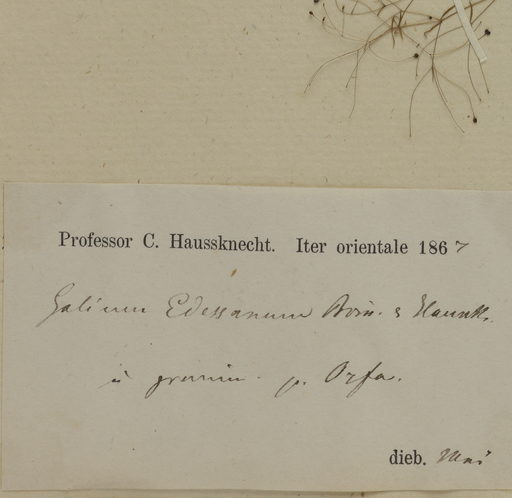 Professor C. Haussknecht. Iter orientale 1867
Galium Edessanum Boiss. & Hausskn.
in gramin. p. Orfa.
dieb. Mai